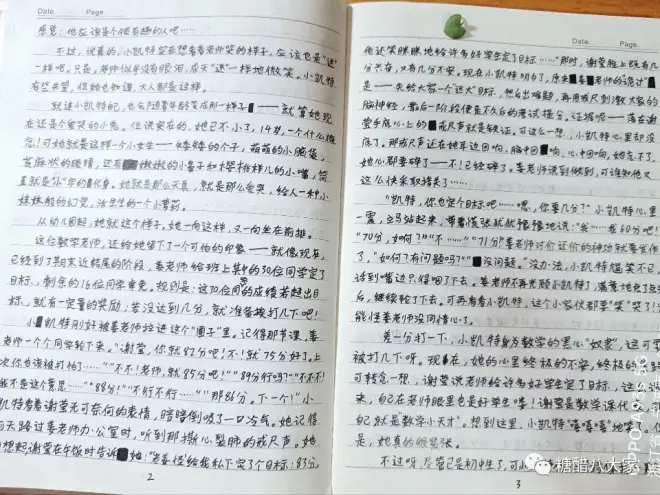 Date. Page.
感觉：他应该是个很有趣的人吧……
不过，说真的，小凯特实在想看看老师哭的样子。应该也是"迷"
一样吧。只是，老师似乎没有眼泪，成天"迷"一样地微笑。小凯特
有些失望，但她也知道，大人都是这样。
就连小凯特自己，也会随着年龄变成那一样子——就算她现
在还是个爱哭的小鬼。但说实在的，她已不小了，14岁，一个什么概
念！可她就是这样一个小女生——矮矮的个子，萌萌的小脑袋，
芸麻状的眼睛，还有嫩嫩的小鼻子和樱桃样儿的小嘴，简
直就是"小"字的化身。她就是那么天真，就是那么爱哭，给人一种小
妹妹般的幻觉，活生生的一个小萝莉。
从幼儿园起，她就这个样子。她一向这样，又一向坐在前排。
这位数学老师，还给她留下了一个可怕的印象——就像现在，
已经到了期末近结尾的阶段，姜老师给班上其中的30位同学定了
目标，剩余的15位同学重免。规则是：这30位同学的成绩若超出目
标，就有一定量的奖励；若没达到几分，就准备挨打几下吧！
小凯特刚好被姜老师拉进这个"圈子"里。记得那节课，姜
老师一个个同学轮下来。"谢莹，你就82分吧！不！就75分好了。上
次你也该被打怕了……""不不！老师，就85分吧！""89分行吗？""不不不！
我不是这个意思……""88分！""不行不行……""那86分。下一个！"小
凯特看着谢莹无可奈何的表情，暗暗倒吸了一口冷气。她记得
每天路过姜老师办公室时，听到那撕心裂肺的戒尺声。她
想起谢莹在午饭时告诉她："老姜怪给我私下定了个目标：83分，
2
Date. Page.
他还笑眯眯地给许多好学生定了目标……"那时，谢莹脸上既有几
分兴奋，又有几分不安。现在小凯特明白了，原来姜老师的诡计
是——先给大家一个"远大"目标，然后出难题，再用戒尺刺激大家的
脑神经，最后一阶段便是不久后的考试提分。证据呢——落在谢
莹手底心上的戒尺声就是铁证。可这么一想，小凯特心里却没
底了。那戒尺声还在她耳边回响，脑中回响，心中回响，她急了，
她心都要碎了——不！已经碎了。姜老师说到做到，可谁知他又
这么快采取措失了……
"凯特，你也定个目标吧……嗯，你要几分？"小凯特心里
一震，立马站起来，带着慌张犹犹豫豫地说："我……我60分吧！"
"70分，如何？""不……""71分！"姜老师讨价还价的神功就要发作
了，"如何？有问题吗？""没问题。"没办法，小凯特尴尬不已，
话到嘴边只得咽了下去。姜老师不再光顾小凯特，潇洒地免了点
后，继续轮了下去。可再看看小凯特，这个小家伙都要"哭"哭了！
能怪姜老师没同情心了。
差一分打一下，小凯特身为数学的黑心"奴隶"，这可要
被打几下呀。现在，她的心里终极的不安，终极的
可转念一想，谢莹说老师给许多好学生定了目标，这么说
来，自己在老师眼里也是好学生喽！谢莹是数学课代
自己就是"数学小天才"。想到这里，小凯特"嘻嘻嘻"地笑
是，她真的很紧张。
不过呀，尽管已是初中生了，可小
3
糖醋八大家